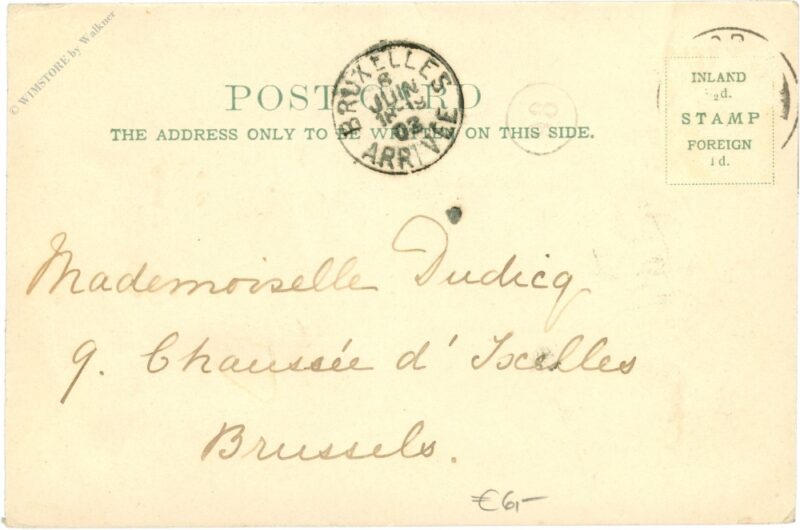 © WIMSTORE by Walkner
POST CARD
THE ADDRESS ONLY TO BE WRITTEN ON THIS SIDE.
BRUXELLES
8
JUIN
03
ARRIVÉE
INLAND
½d.
STAMP
FOREIGN
1d.
Mademoiselle Dudicq
9. Chaussée d' Ixelles
Brussels.
€6,-